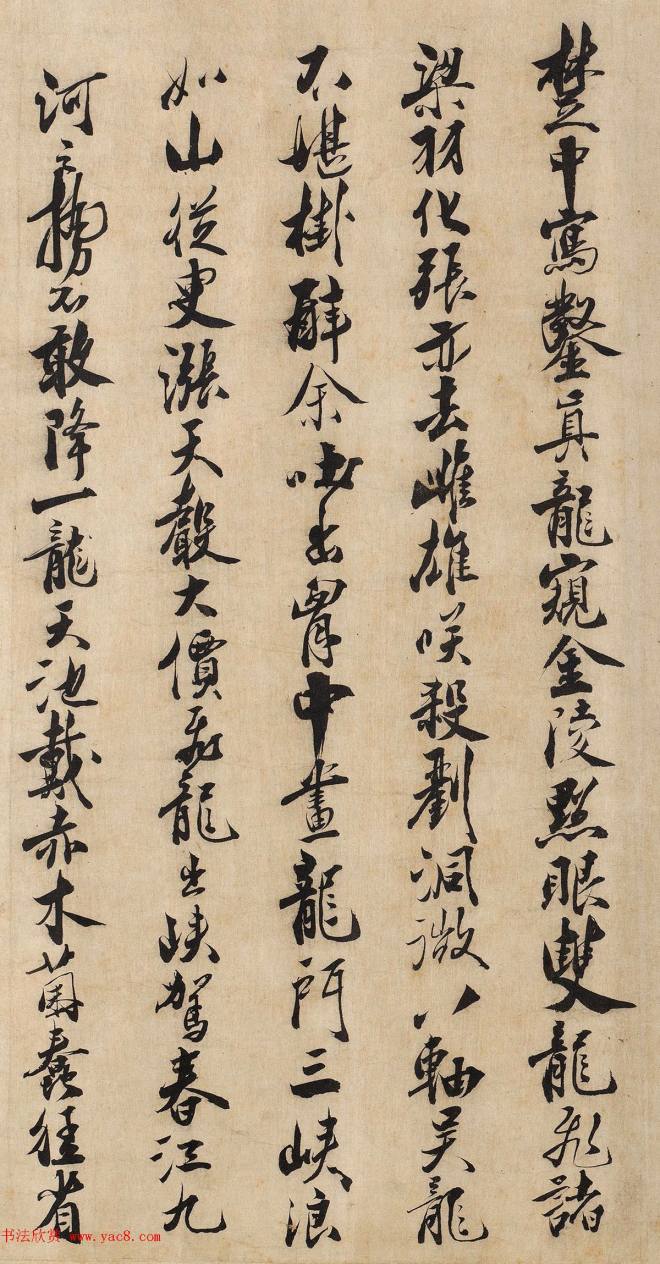 楚中寫鑿真龍窺金陵點眼雙龍飛諸
梁羽化張亦去雌雄咲殺劉洞微八軸吳龍
不堪掛醉余吐出胷中畫龍門三峽浪
如山從叟漲天聲大價飛龍出峽駕春江九
河之勢不敢降一龍天池戴赤木經省
书法欣赏 www.yac8.com